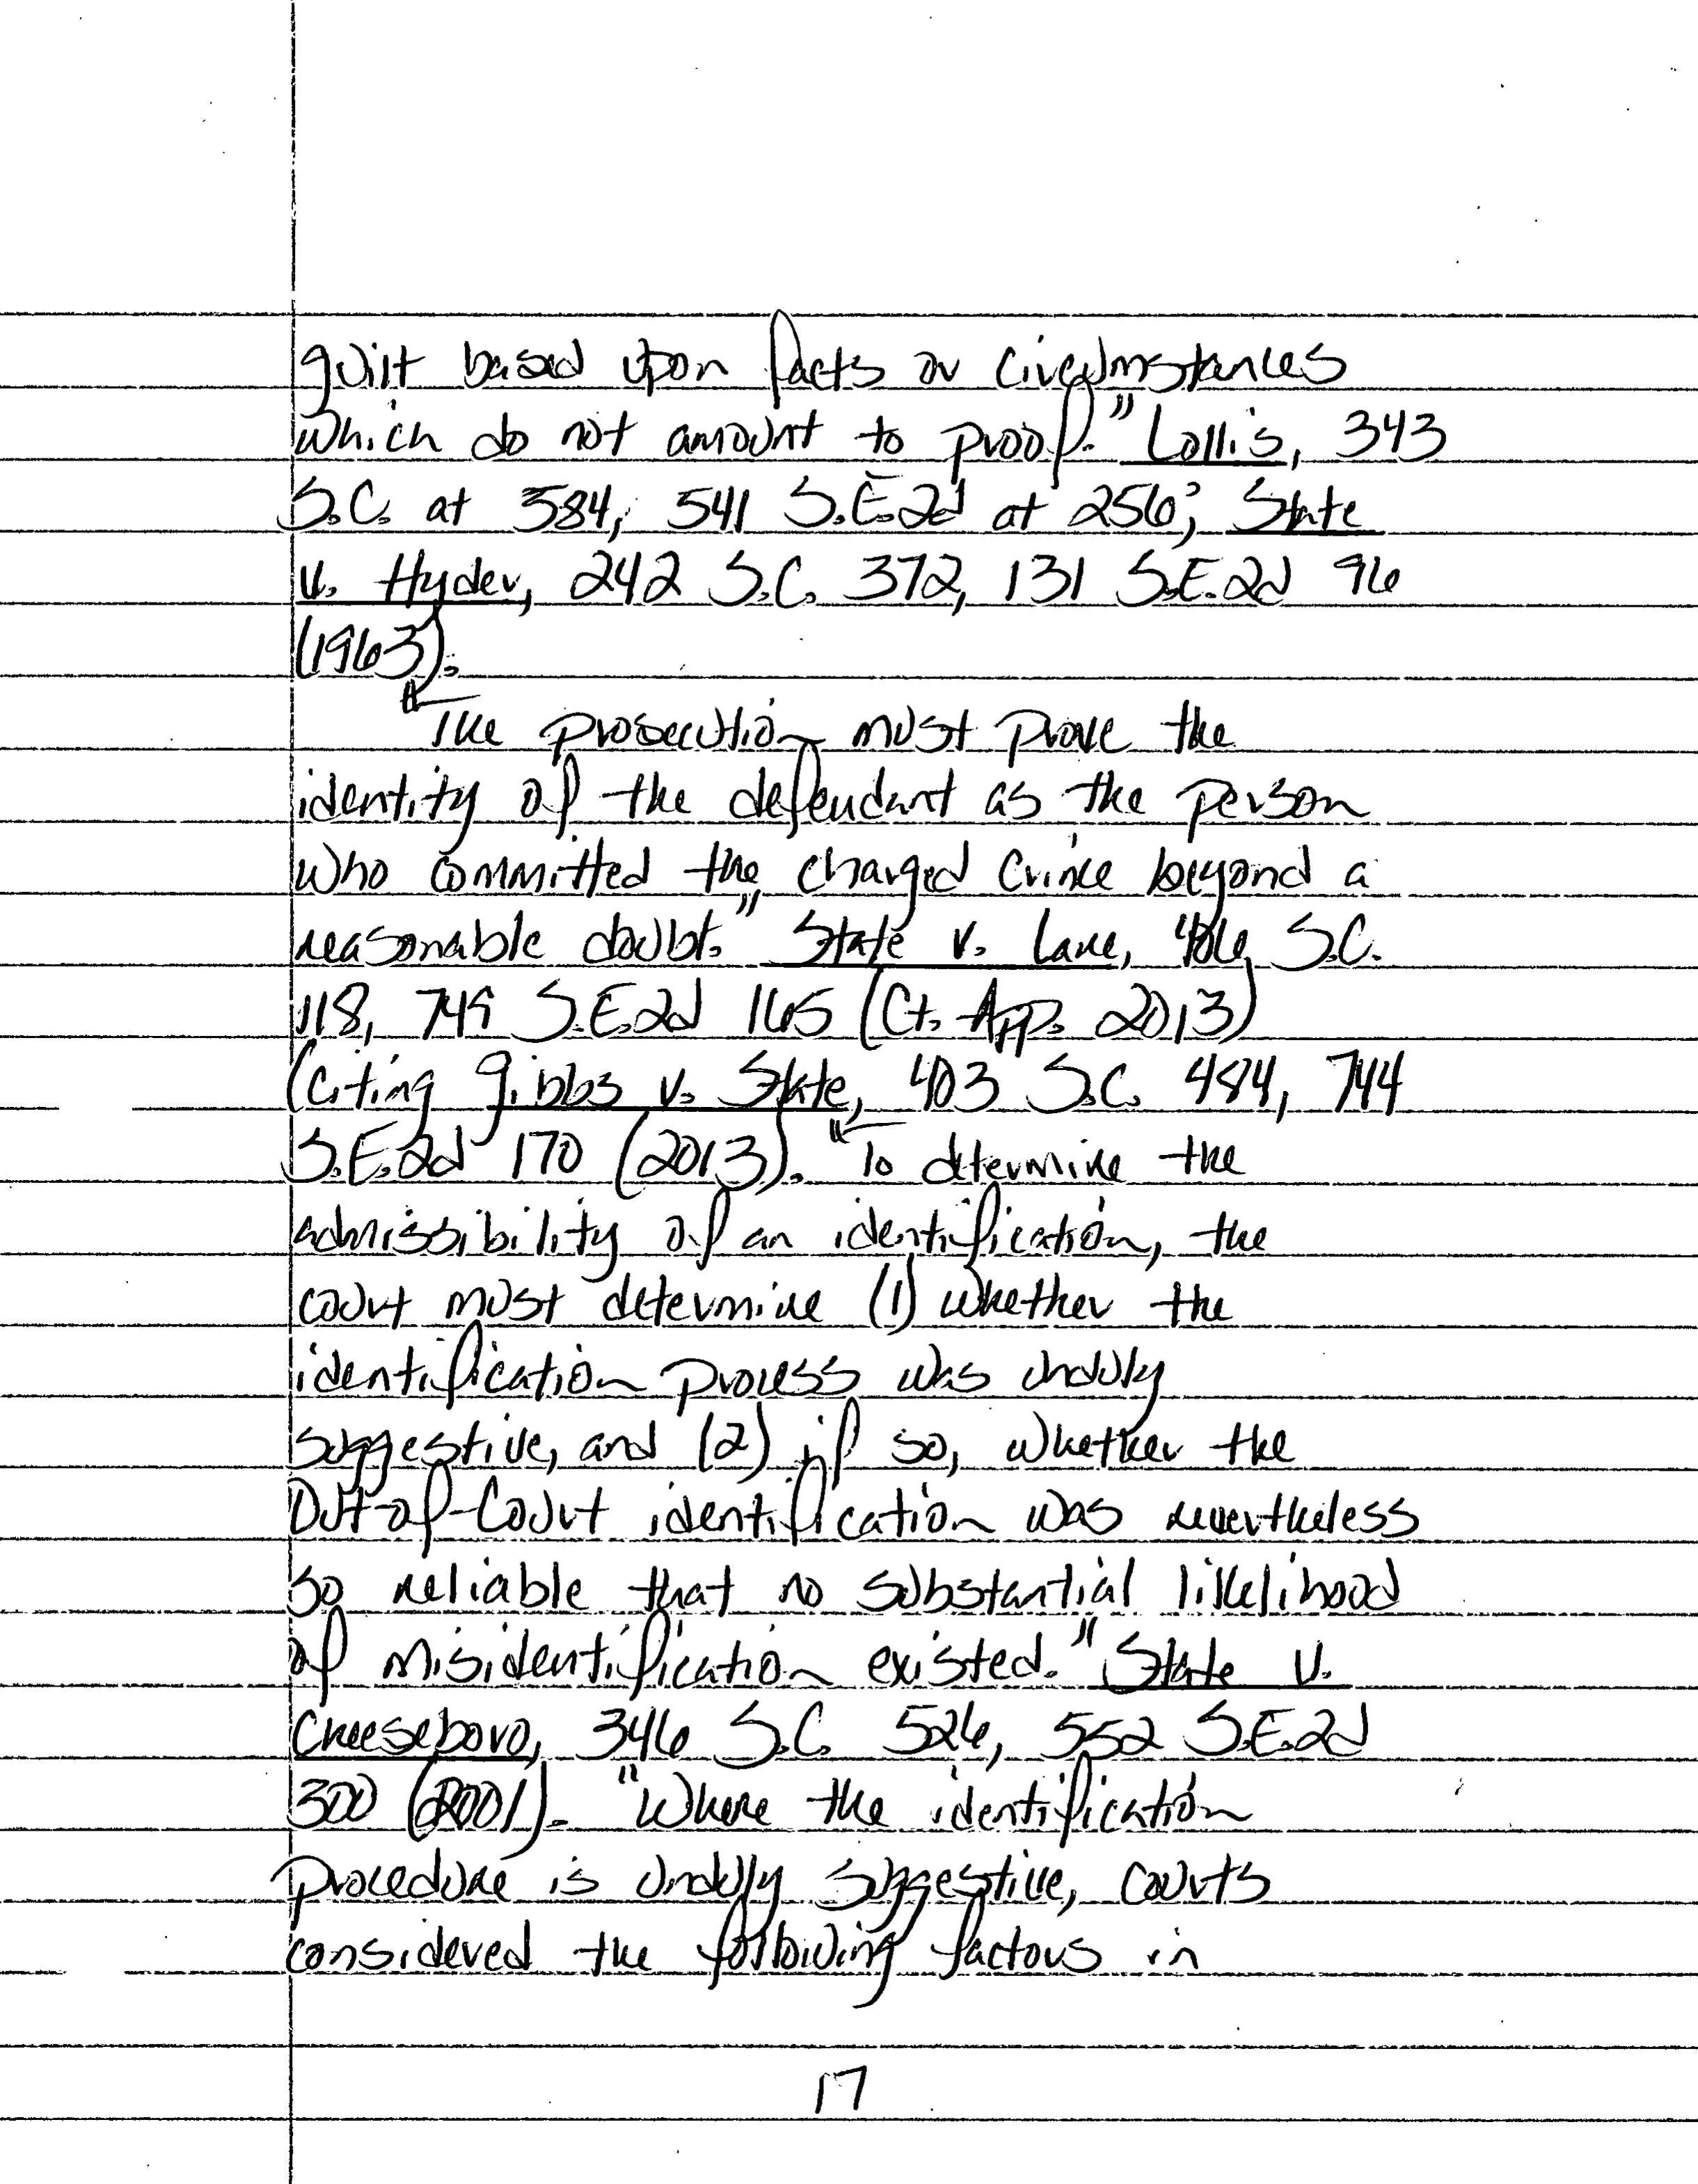 guilt based upon facts or circumstances
which do not amount to proof." Lollis, 343
S.C. at 584, 541 S.E.2d at 256; State
v. Hyder, 242 S.C. 372, 131 S.E.2d 96
(1963).
"The prosecution must prove the
identity of the defendant as the person
who committed the charged crime beyond a
reasonable doubt." State v. Lane, S.C.
118, 749 S.E.2d 165 (Ct. App. 2013)
(citing Gibbs v. State, 403 S.C. 484, 744
S.E.2d 170 (2013). "To determine the
admissibility of an identification, the
court must determine (1) whether the
identification process was unduly
suggestive, and (2) if so, whether the
Out-of-Court identification was nevertheless
so reliable that no substantial likelihood
of misidentification existed." State v.
Cheeseboro, 346 S.C. 526, 552 S.E.2d
300 (2001). "Where the identification
procedure is unduly suggestive, courts
considered the following factors in
17